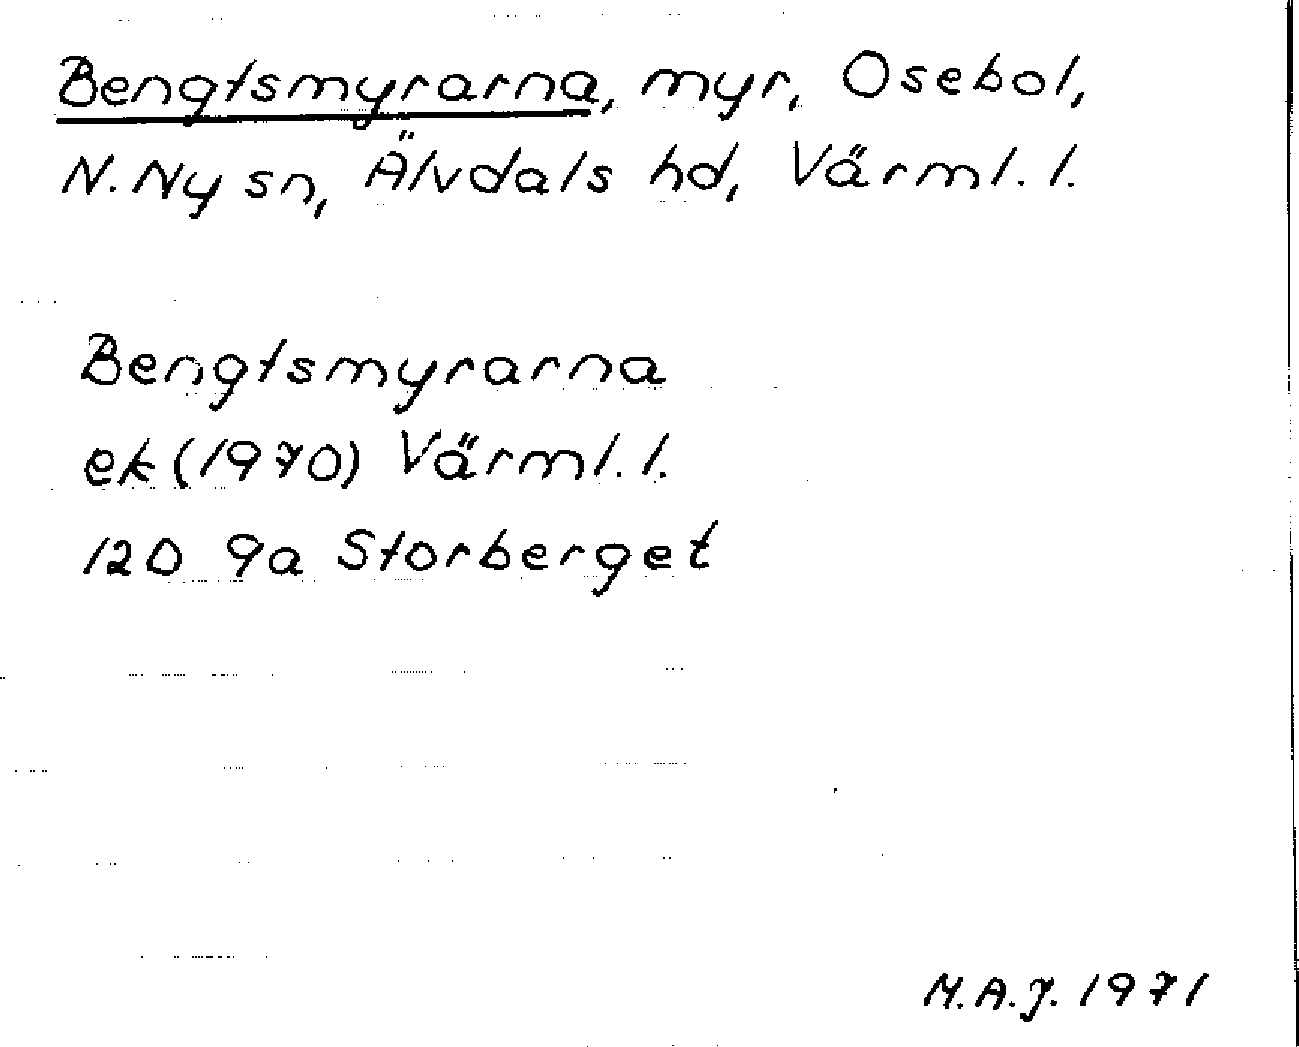 Bengtsmyrarna, myr, Osebol,
N. Ny sn, Älvdals hd, Värml. l.
Bengtsmyrarna
ek (1970) Värml. l.
12D 9a Storberget
M.A.J. 1971